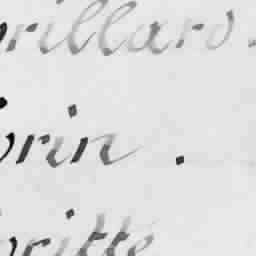 rillard.
rin .
ritte